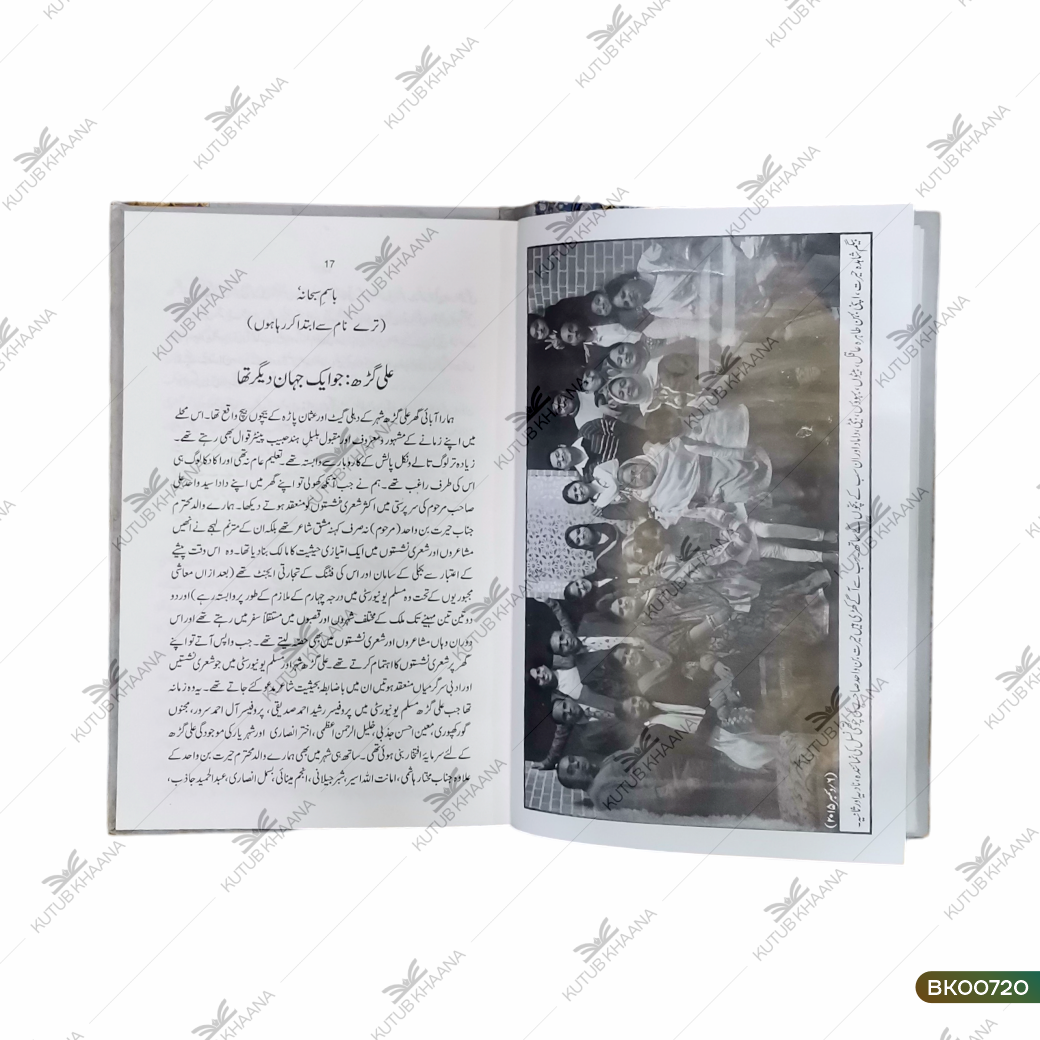 17
باسم سبحانہٗ
(ترے نام سے ابتدا کر رہا ہوں)
علی گڑھ: جو ایک جہان دیگر تھا
ہمارا آبائی گھر علی گڑھ شہر کے دہلی گیٹ اور عثمان پاڑہ کے بیچوں بیچ واقع تھا۔ اس محلے
میں اپنے زمانے کے مشہور و معروف اور مقبول بلبلِ ہند حبیب پینٹر قوال بھی رہتے تھے۔
زیادہ تر لوگ تالے و نکل پالش کے کاروبار سے وابستہ تھے۔ تعلیم عام نہ تھی اور اکا دکا لوگ ہی
اس کی طرف راغب تھے۔ ہم نے جب آنکھ کھولی تو اپنے گھر میں اپنے دادا سید واحد علی
صاحب مرحوم کی سرپرستی میں اکثر شعری نشستوں کو منعقد ہوتے دیکھا۔ ہمارے والد محترم
جناب حیرت بن واحد (مرحوم) نہ صرف کہنہ مشق شاعر تھے بلکہ ان کے مترنم لہجے نے انھیں
مشاعروں اور شعری نشستوں میں ایک امتیازی حیثیت کا مالک بنا دیا تھا۔ وہ اس وقت پیشے
کے اعتبار سے بجلی کے سامان اور اس کی فٹنگ کے تجارتی ایجنٹ تھے (بعد ازاں معاشی
مجبوریوں کے تحت وہ مسلم یونیورسٹی میں درجہ چہارم کے ملازم کے طور پر وابستہ رہے) اور دو
دو تین تین مہینے تک ملک کے مختلف شہروں اور قصبوں میں مستقلاً سفر میں رہتے تھے اور اس
دوران وہاں مشاعروں اور شعری نشستوں میں بھی حصہ لیتے تھے۔ جب واپس آتے تو اپنے
گھر پر شعری نشستوں کا اہتمام کرتے تھے۔ علی گڑھ شہر اور مسلم یونیورسٹی میں جو شعری نشستیں
اور ادبی سرگرمیاں منعقد ہوتیں ان میں باضابطہ بحیثیت شاعر مدعو کئے جاتے تھے۔ یہ وہ زمانہ
تھا جب علی گڑھ مسلم یونیورسٹی میں پروفیسر رشید احمد صدیقی، پروفیسر آل احمد سرور، مجنوں
گورکھپوری، معین احسن جذبی، خلیل الرحمن اعظمی، اختر انصاری اور شہریار کی موجودگی علی گڑھ
کے لئے سرمایۂ افتخار بنی ہوئی تھی۔ ساتھ ہی شہر میں بھی ہمارے والد محترم حیرت بن واحد کے
علاوہ جناب مختار ہاشمی، امانت اللہ اسیر، شبر جیلانی، انجم مینائی، بسمل انصاری، عبدالحمید جاذب،
(۶؍دسمبر ۲۰۱۵)
KUTUB KHAANA
BK00720